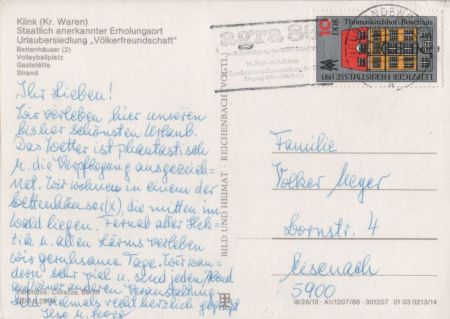 Klink (Kr. Waren)
Staatlich anerkannter Erholungsort
Urlaubersiedlung „Völkerfreundschaft"
Bettenhäuser (2)
Volleyballplatz
Gaststätte
Strand
Ihr Lieben!
Wir verleben hier unseren
bisher schönsten Urlaub.
Das Wetter ist phantastisch
u. die Verpflegung ausgezeich-
net. Wir wohnen in einem der
Bettenhäuser (X), die mitten im
Wald liegen. Fernab aller Hek-
tik u. allen Lärms verleben
wir geruhsame Tage. Wir wan-
dern sehr viel u. sind jeden Abend
auf einer anderen Veranstaltung.
recht herzlich gegrüßt
Ilse u. Georg
Fotos: Corazza, Berlin
BILD UND HEIMAT · REICHENBACH (VOGTL)
agra
Thomaskirchhof · Bosehaus
10
DDR
LEIPZIGER HERBSTMESSE 1985
Familie
Volker Meyer
Dornstr. 4
Eisenach
5900
A1/1207/86 301207 01 03 0213/14